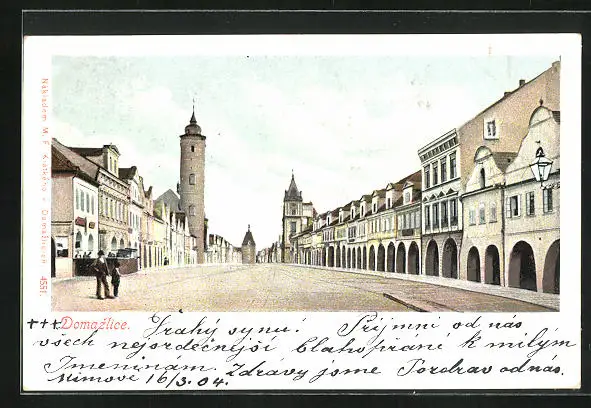 Nákladem M. F. Králkého v Domažlicích 4551.
+++ Domažlice. Drahý synu! Přijmni od nás
všech nejsrdečnějšί blahopřání k milým
Jmeninám. Zdravy jsme Pozdrav od nás.
Mimově 16/3. 04.